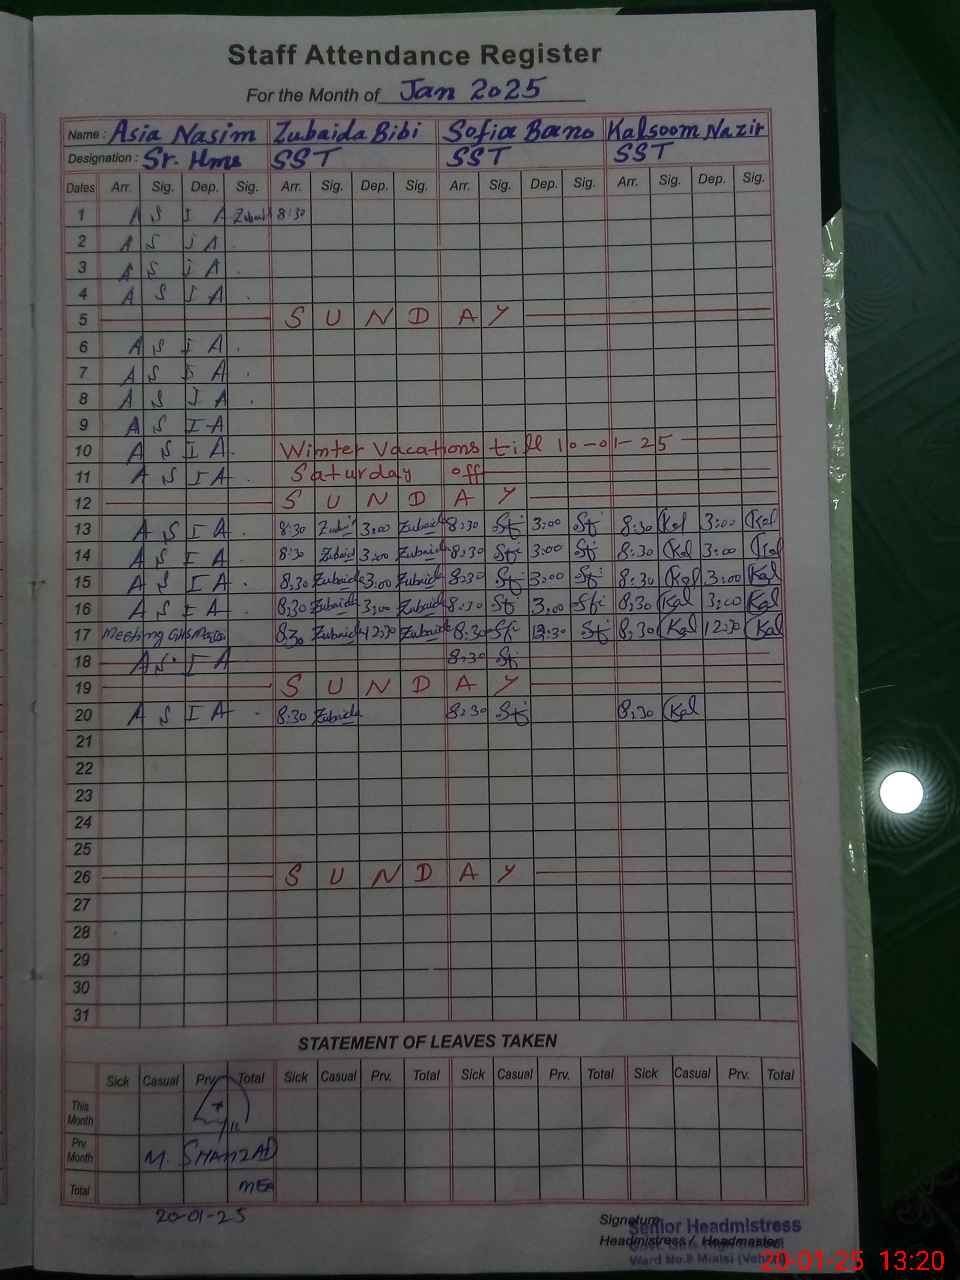 Staff Attendance Register
For the Month of Jan 2025
Name : Asia Nasim Zubaida Bibi Sofia Bano Kalsoom Nazir
Designation : Sr. Hms SST SST SST
Dates Arr. Sig. Dep. Sig. Arr. Sig. Dep. Sig. Arr. Sig. Dep. Sig. Arr. Sig. Dep. Sig.
1 A S I A Zubaid 8:30
2 A S I A
3 A S I A
4 A S I A
5 S U N D A Y
6 A S I A
7 A S I A
8 A S I A
9 A S I A
10 A S I A Winter Vacations till 10-01-25
11 A S I A Saturday off
12 S U N D A Y
13 A S I A 8:30 Zubai 3:00 Zubaida 8:30 Sf 3:00 Sf 8:30 Kal 3:00 Kal
14 A S I A 8:30 Zubaid 3:00 Zubaida 8:30 Sf 3:00 Sf 8:30 Kal 3:00 Kal
15 A S I A 8:30 Zubaida 3:00 Zubaida 8:30 Sf 3:00 Sf 8:30 Kal 3:00 Kal
16 A S I A 8:30 Zubaida 3:00 Zubaida 8:30 Sf 3:00 Sf 8:30 Kal 3:00 Kal
17 Meeting 8:30 Zubaida 12:30 Zubaida 8:30 Sf 12:30 Sf 8:30 Kal 12:30 Kal
18 A S I A 8:30 Sf
19 S U N D A Y
20 A S I A 8:30 Zubaida 8:30 Sf 8:30 Kal
21
22
23
24
25
26 S U N D A Y
27
28
29
30
31
STATEMENT OF LEAVES TAKEN
Sick Casual Prv. Total Sick Casual Prv. Total Sick Casual Prv. Total Sick Casual Prv. Total
This Month
Prv. Month M. SHAHZAD
Total MEA
20-01-25
Signature
Senior Headmistress
Headmistress / Headmaster
Ward No.9 Mailsi (Vehari)
20-01-25 13:20